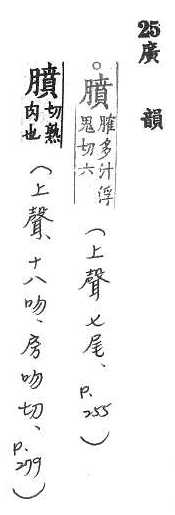 25廣韻
○膹臛多汁浮鬼切六(上聲七尾、p.255)
膹切熟肉也(上聲、十八吻、房吻切、p.279)